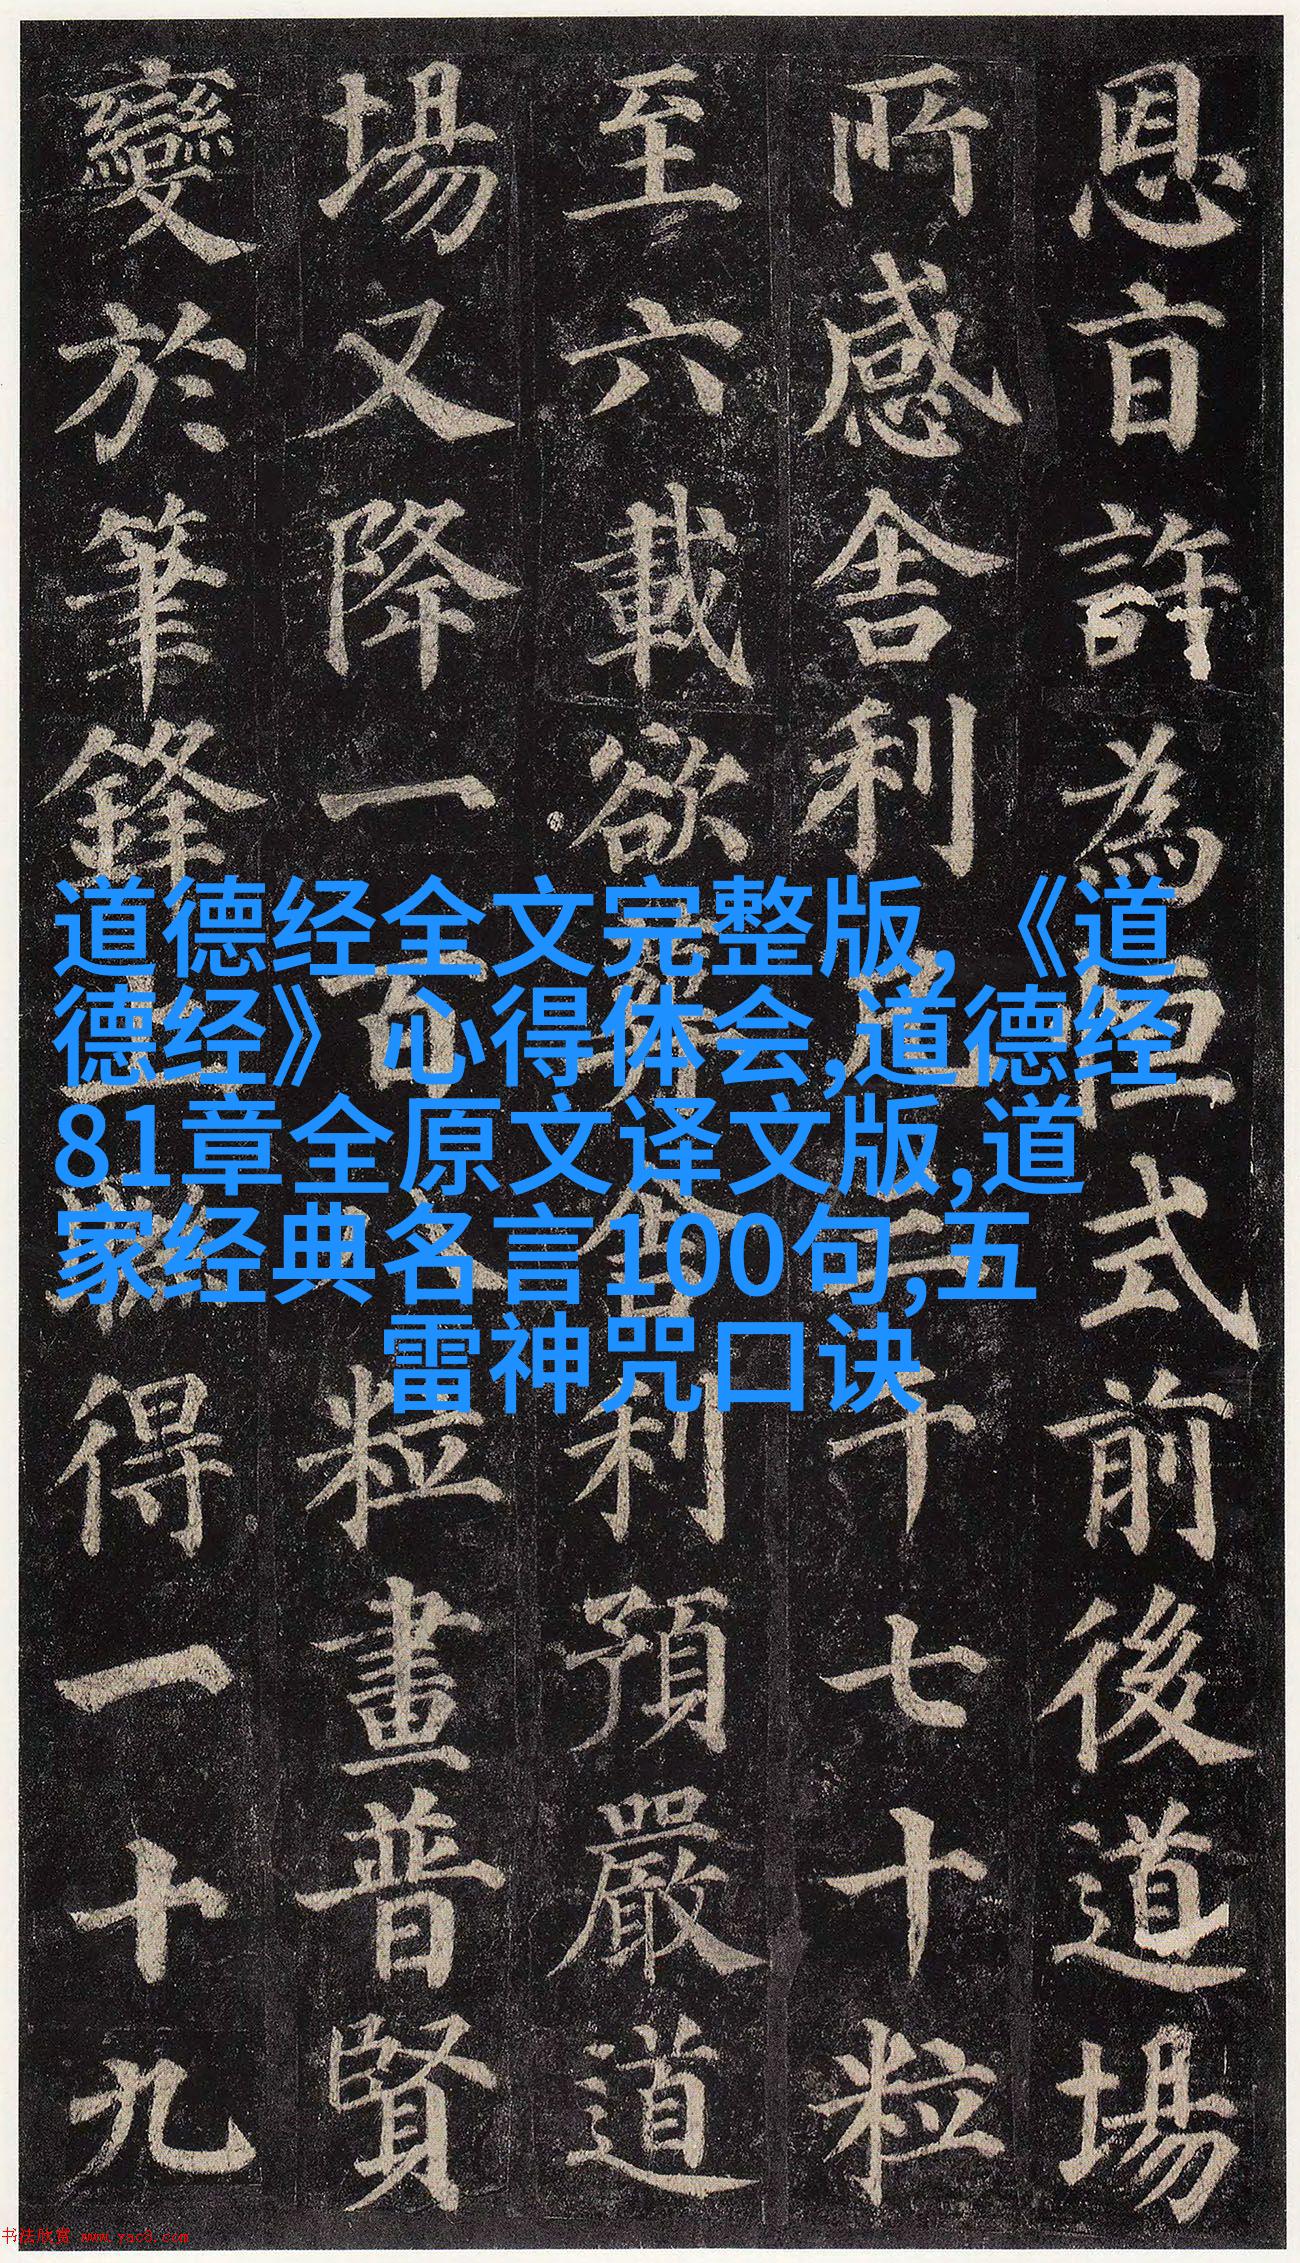 恩旨許為恒式前後道場
所感舍利凡三千七十粒
至六載欲葬舍利預嚴道
場又降一百八粒畫普賢
變於筆鋒上聯得一十九
道德经全文完整版,《道
德经》心得体会,道德经
81章全原文译文版,道
家经典名言100句,五
雷神咒口诀
书法欣赏 www.yac8.com